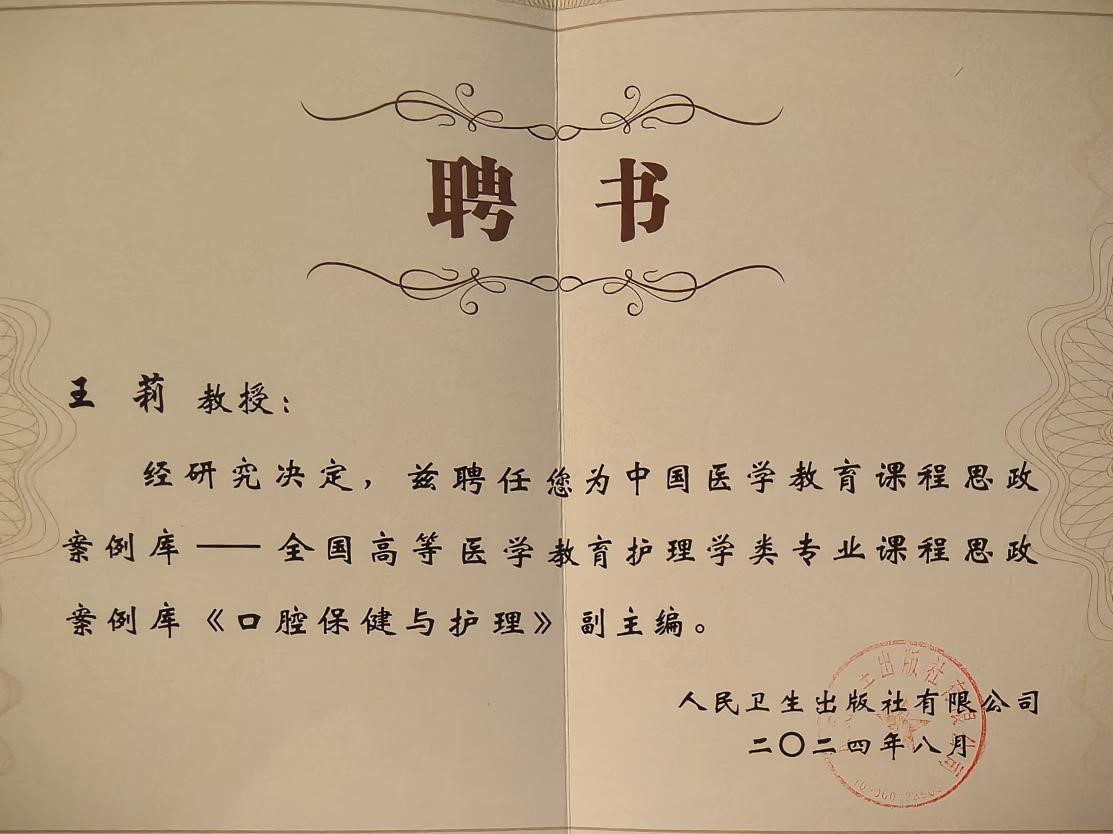 聘书
王莉 教授：
经研究决定，兹聘任您为中国医学教育课程思政
案例库——全国高等医学教育护理学类专业课程思政
案例库《口腔保健与护理》副主编。
人民卫生出版社有限公司
二〇二四年八月